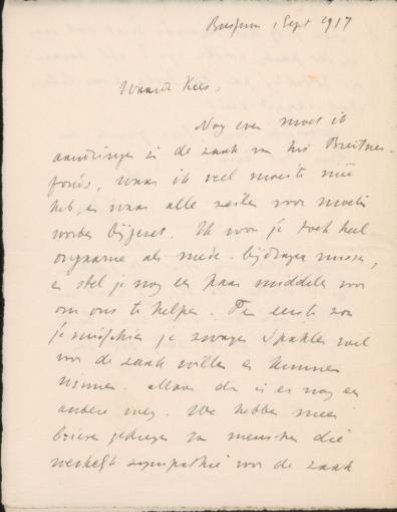 Bussum 1 Sept 1917
Waarde Kees,
Nog even moet ik
aandringen in de zaak van het Breitner-
fonds, waar ik veel moeite mee
heb, en waar alle zeilen voor moeten
worden bijgezet. Ik wou je toch heel
ongaarne als mede-bijdrager missen,
en stel je nog een paar middelen voor
om ons te helpen. Ten eerste zou
je misschien je zwager Spakler wel
voor de zaak willen en kunnen
winnen. Maar dan is er nog een
andere weg. We hebben meer
brieven gekregen van menschen die
werkelijk sympathie voor de zaak